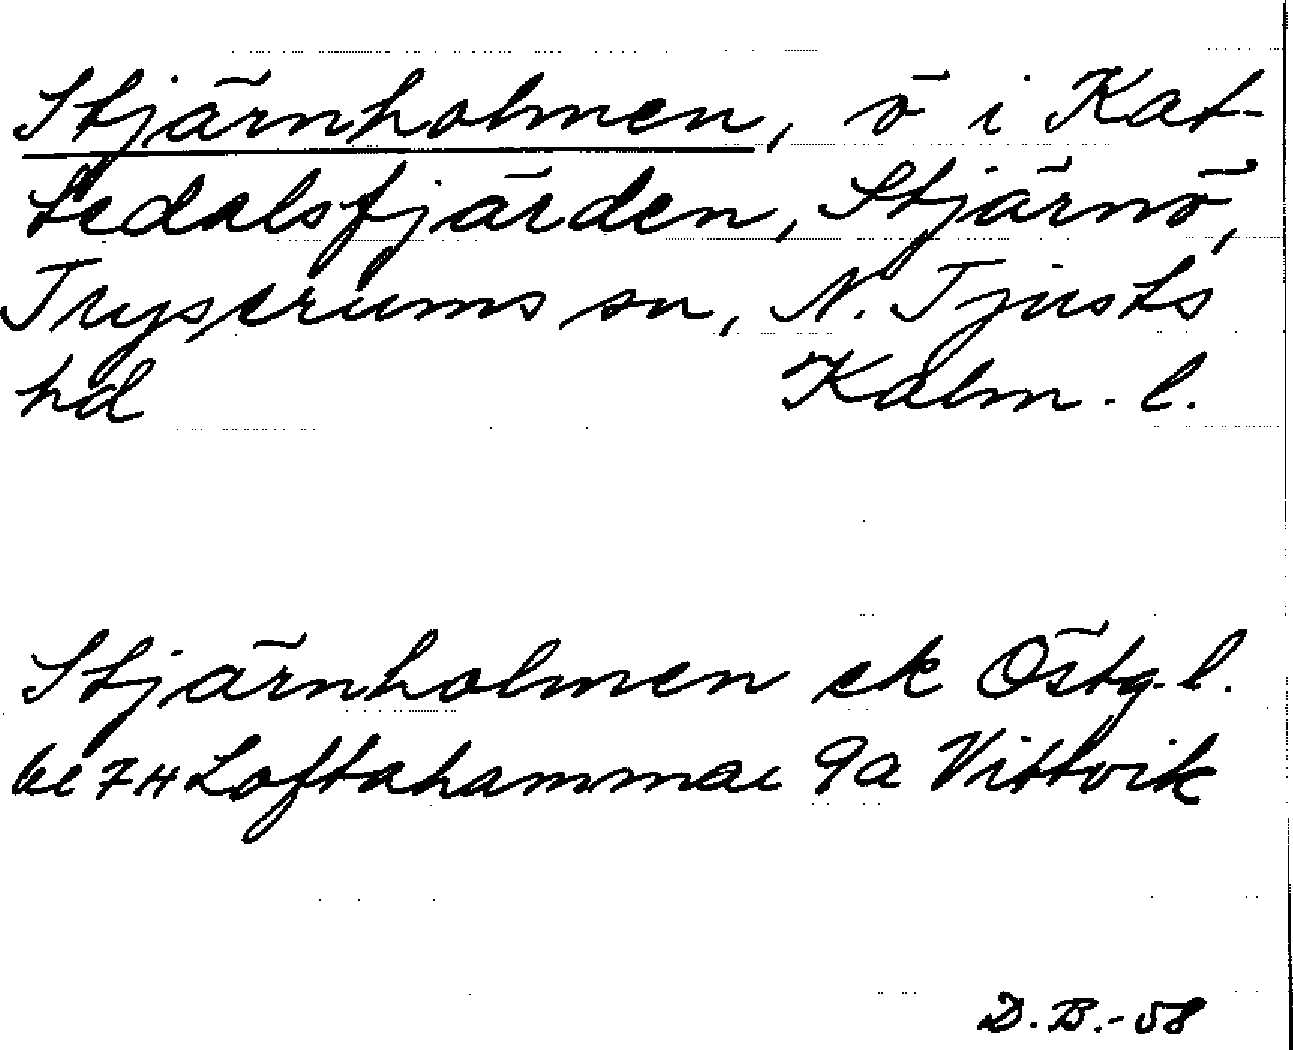 Stjärnholmen, ö i Kat-
tedalsfjärden, Stjärnö,
Tryserums sn, N. Tjusts
hd Kalm. l.
Stjärnholmen ek Östg. l.
bl 74 Loftahammar 9a Vittvik
D. B. - 58